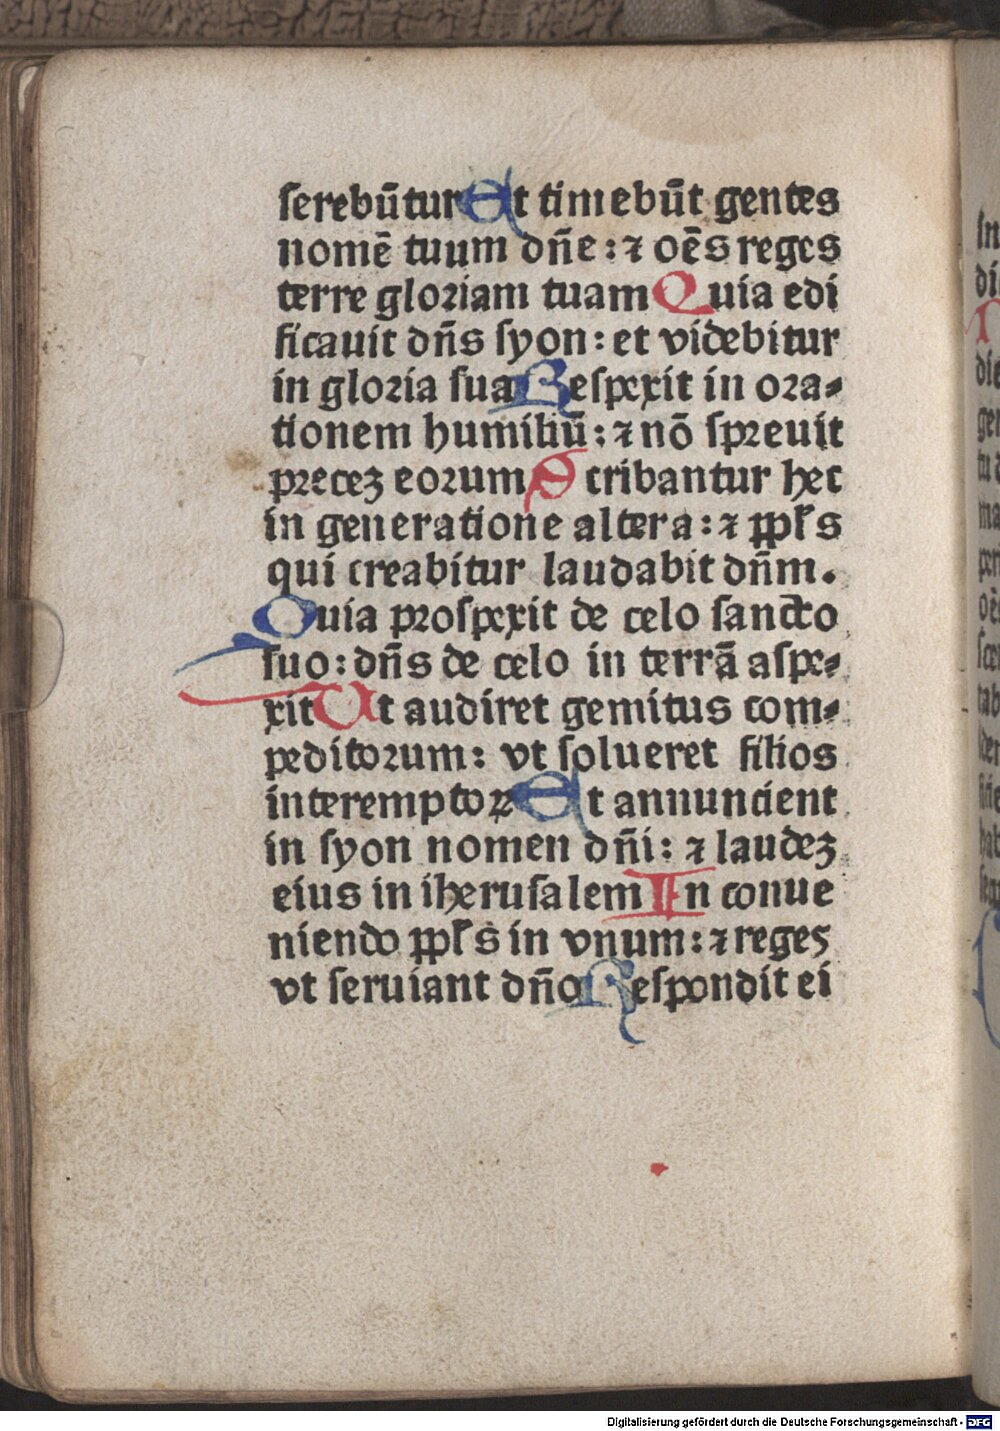 ſerebūtur Et timebūt gentes
nomē tuum dn̄e: ⁊ oēs reges
terre gloꝛiam tuam Quia edi
ficauit dn̄s ſyon: et videbitur
in gloꝛia ſua Reſpexit in oꝛa⸗
tionem humiliū: ⁊ nō ſpꝛeuit
pꝛecez eoꝛum Scribantur hec
in generatione altera: ⁊ ppl̄s
qui creabitur laudabit dn̄m.
Quia pꝛoſpexit de celo ſancto
ſuo: dn̄s de celo in terrā aſpe⸗
xit Ut audiret gemitus com⸗
peditoꝛum: vt ſolueret filios
interemptoꝝ Et annuncient
in ſyon nomen dn̄i: ⁊ laudez
eius in iheruſalem In conue
niendo ppl̄s in vnum: ⁊ reges
vt ſeruiant dn̄o Reſpondit ei
Digitalisierung gefördert durch die Deutsche Forschungsgemeinschaft - DFG